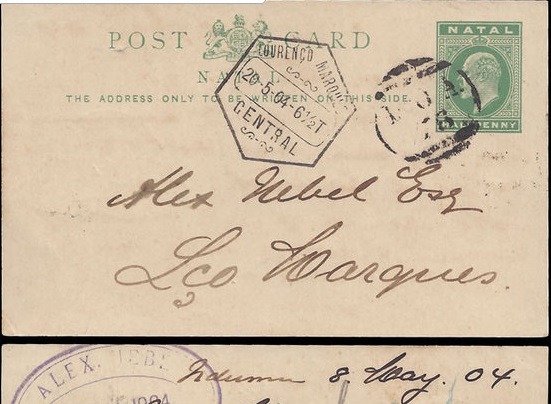 POST CARD
NATAL
THE ADDRESS ONLY TO BE WRITTEN ON THIS SIDE.
NATAL
HALFPENNY
LOURENÇO MARQUES
20-5-04-6½T
CENTRAL
Alex Nebel Esq
Lço Marques.
ALEX. NEBE
1904
8. May. 04.